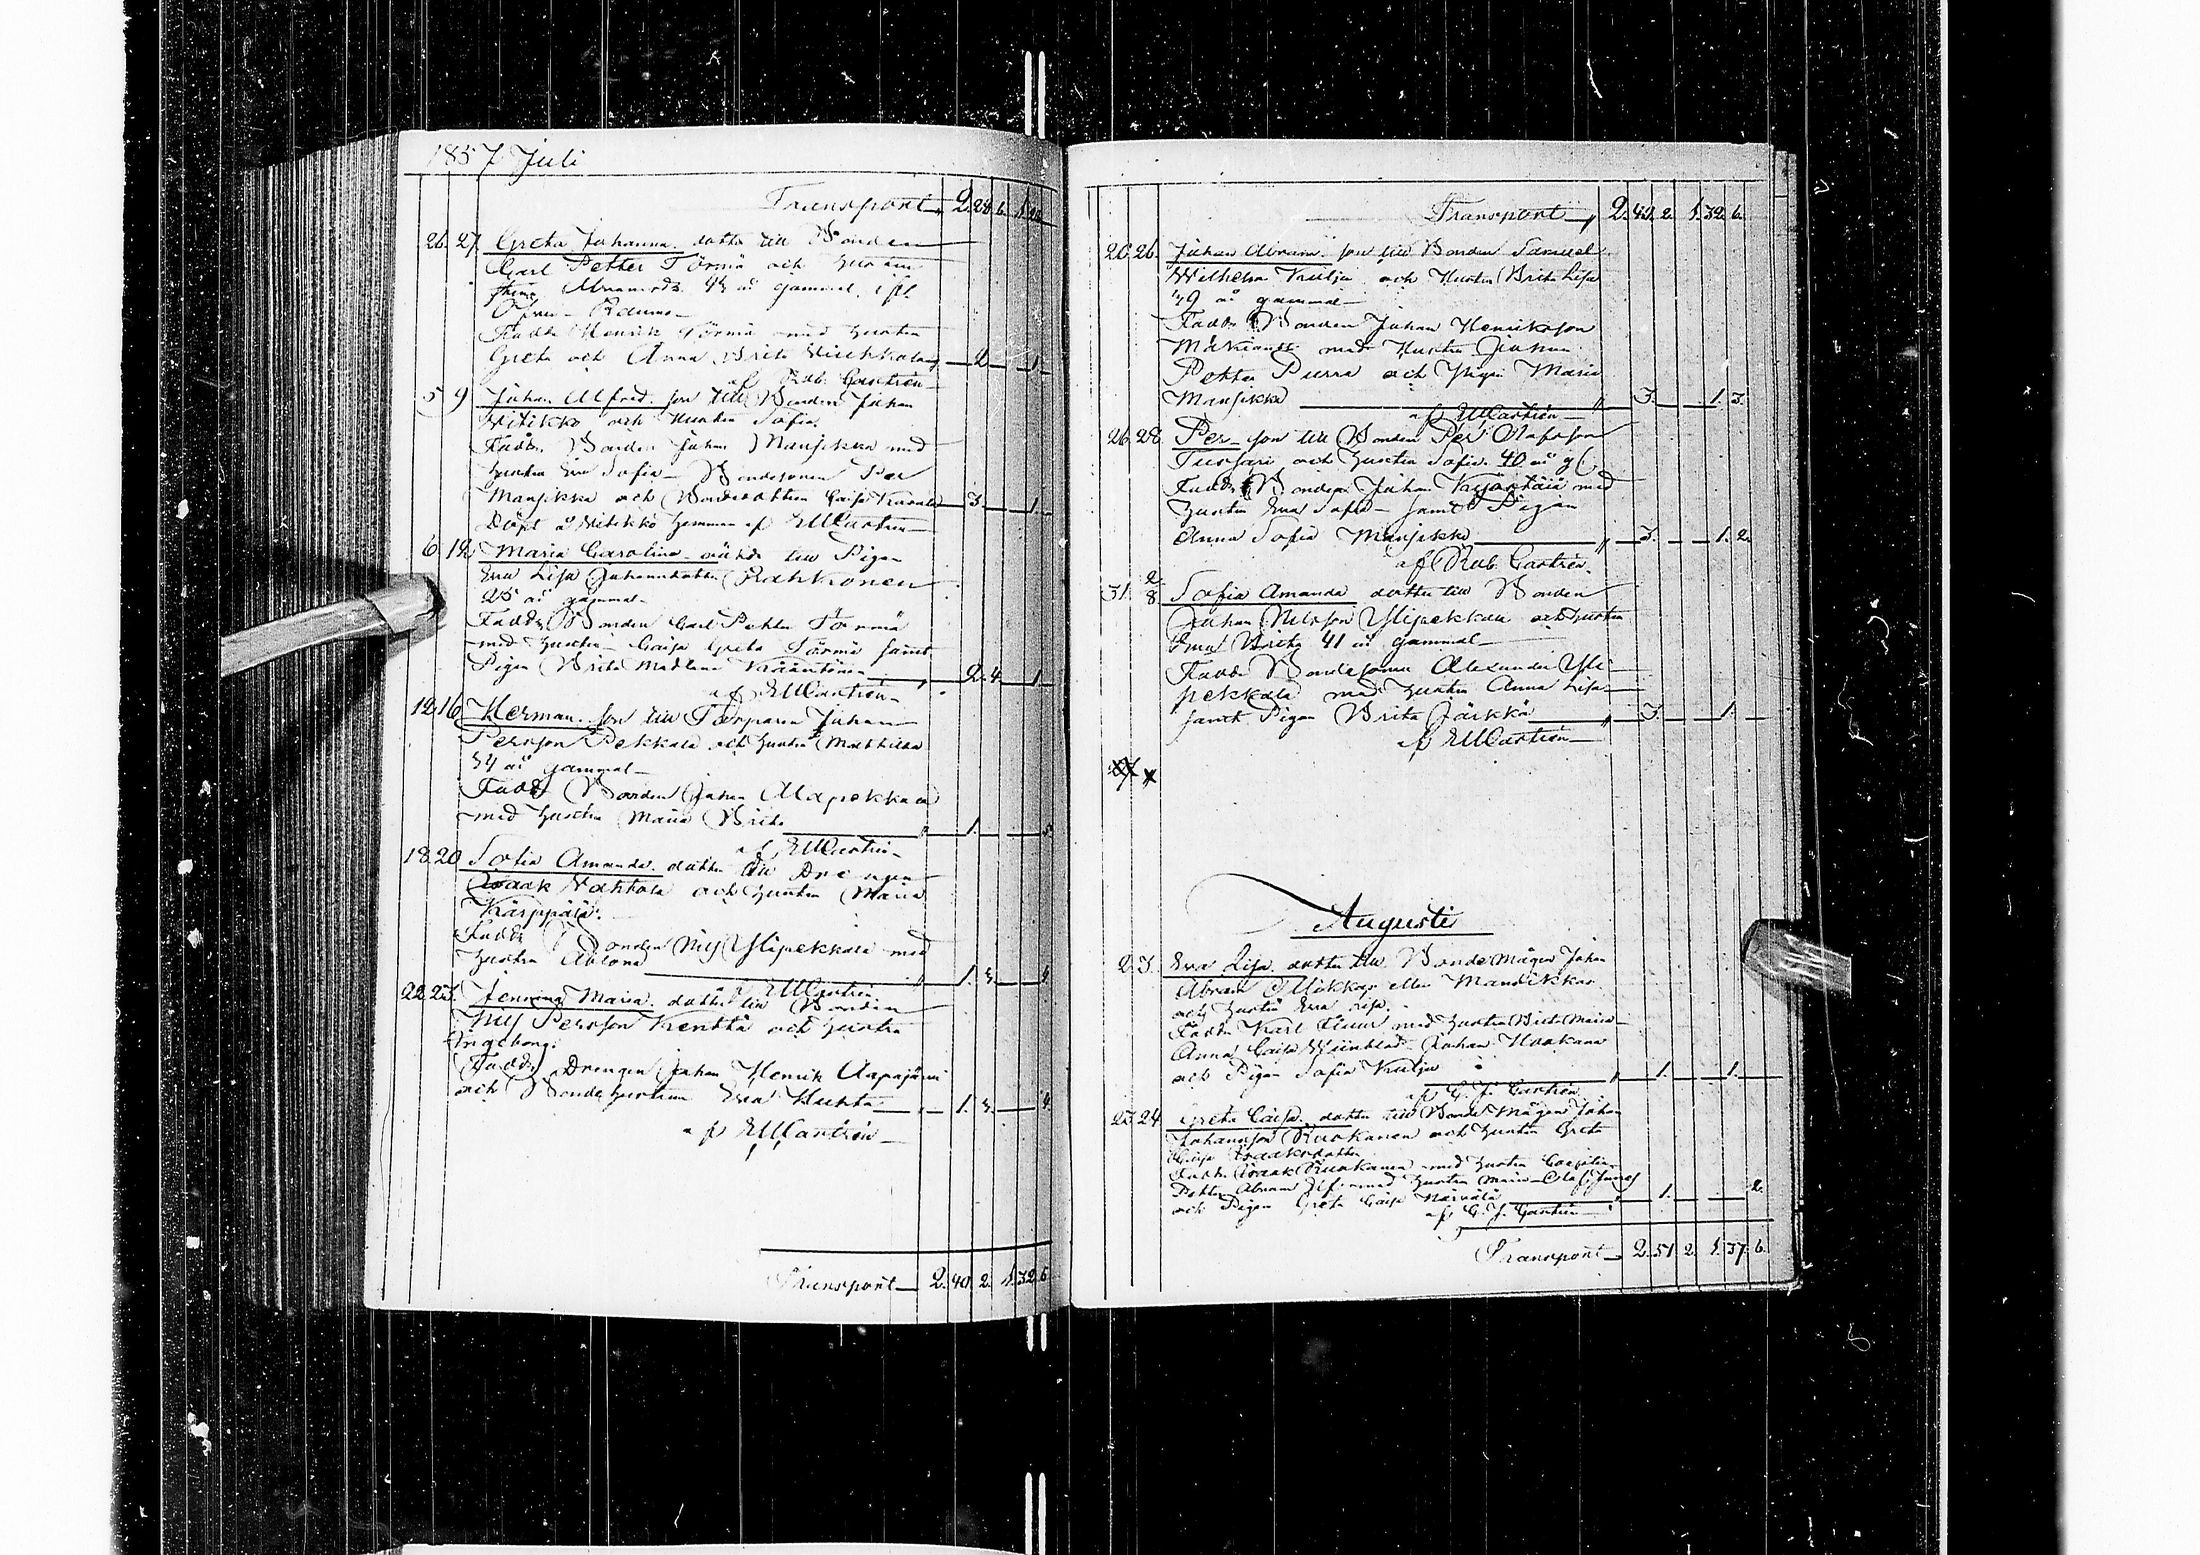 1857 Juli
Transport 2. 28 6. 1.
26. 27 Greta Johanna dotter till Bonden
Carl Petter Törmä och hustru
Abramsd. år gammal
Öfver-Rauma
Fadd. Henrik Törmä med hustru
Greta och Anna Brita 2 1.
af Rob. Castrén
5 9 Johan Alfred son till Bonden Johan
Witikko och Hustru Sofia
Fadd. Bonden Johan Mansikka med
hustru Eva Sofia Bondesonen Per
Mansikka och Bondedottern Caisa 3 1.
Döpt å Witikko hemman af EMCastrén
6. 12 Maria Carolina oäkta till Pigan
Eva Lisa Johansdotter Rahkonen
25 år gammal
Fadd. Bonden Carl Petter Törmä
med hustru Caisa Greta Törmä samt
Pigan Brita Madlena 2. 4. 1.
af EMCastrén
12. 16 Herman son till Torparen Johan
Persson Pekkala och hustru Mathilda
34 år gammal
Fadd. Bonden Johan Alapekkala
med hustru Maria Brita 1. 5
af EMCastrén
18. 20 Sofia Amanda dotter till Drengen
Isaak Wahtola och hustru Maria
Karppäiä
Fadd. Bonden Nils Ylipekkala med
hustru Ablona 1. 3. 4
af EMCastrén
22. 23. Jenning Maria dotter till Bonden
Nils Persson Kenttä och hustru
Ingeborg
Fadd. Drengen Johan Henrik Aapajärvi
och Bonde hustrun Eva Huhta 1. 3. 4
af EMCastrén
Transport 2. 40. 2. 1. 32 6
Transport 2. 40. 2. 1. 32. 6.
20. 26. Johan Abram son till Bonden Samuel
Wilhelm Kulju och Hustru Brita Lisa
39 år gammal
Fadd. Bonden Johan Henriksson
med Hustru Johan
Petter Purra och Pigan Maria
Mansikka 3. 1. 3.
af EMCastrén
26. 28 Per son till Bonden Per Olofsson
och hustru Sofia 40 år g.
Fadd. Bonden Johan med
hustru Eva Sofia samt Pigan
Anna Sofia Mansikka 3. 1. 2.
af Rob. Castrén.
31. 2/8 Sofia Amanda dotter till Bonden
Johan Nilsson Ylipekkala och hustru
Eva Brita 41 år gammal
Fadd. Bondesonen Alexander Yli-
pekkala med hustru Anna Lisa
samt Pigan Brita Järkkä 3. 1.
af EMCastrén
Augusti
2. 3. Eva Lisa dotter till Bonde Mågen Johan
Abram Mikkar eller Mansikkar
och hustru Eva Lisa
Fadd. Karl med hustru Brita Maria
Anna Caisa Johan
och Pigan Sofia Kulju 1. 1.
af C. J. Castrén
23. 24 Greta Caisa dotter till Bonde Mågen Johan
Johansson Ruokanen och hustru Greta
Caisa Isaaksdotter
Fadd. Isaak Ruokanen med hustru
Petter Abram med hustru Maria Olof
och Pigan Greta Caisa 1. 2.
af C. J. Castrén
Transport 2. 51 2. 1. 37. 6.